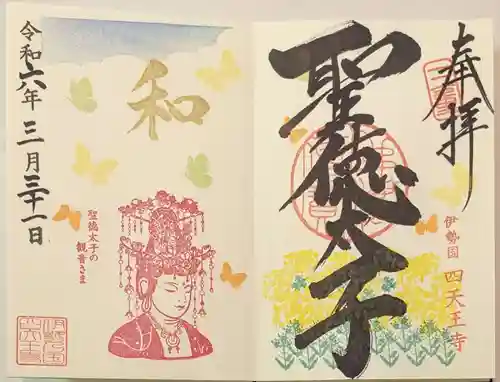 奉拝
聖徳太子
伊勢国 四天王寺
和
聖徳太子の
観音さま
令和六年 三月三十一日